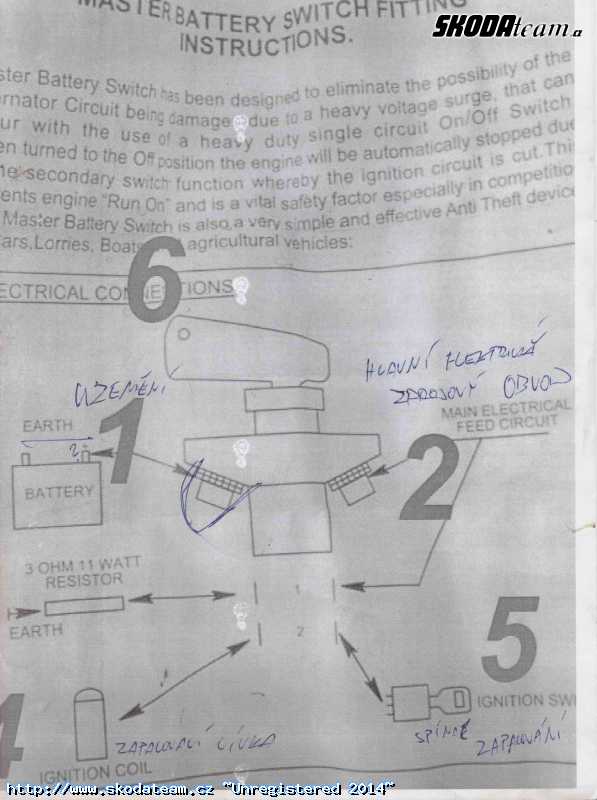 MASTER BATTERY SWITCH FITTING
INSTRUCTIONS.
ŠKODAteam.cz
ster Battery Switch has been designed to eliminate the possibility of the
ernator Circuit being damage due to a heavy voltage surge, that can
ur with the use of a heavy duty single circuit On/Off Switch
en turned to the Off position the engine will be automatically stopped due
he secondary switch function whereby the ignition circuit is cut. This
ents engine "Run On" and is a vital safety factor especially in competitio
Master Battery Switch is also a very simple and effective Anti Theft device
ars, Lorries, Boats agricultural vehicles:
6
ECTRICAL CONNECTIONS
UZEMĚNÍ
HLAVNÍ ELEKTRICKÝ
ZDROJOVÝ OBVOD
EARTH
1
MAIN ELECTRICAL
FEED CIRCUIT
2
?
BATTERY
3 OHM 11 WATT
RESISTOR
1
EARTH
2
5
4
IGNITION SWI
ZAPALOVACÍ CÍVKA
SPÍNAČ
ZAPALOVÁNÍ
IGNITION COIL
http://www.skodateam.cz ~Unregistered 2014~